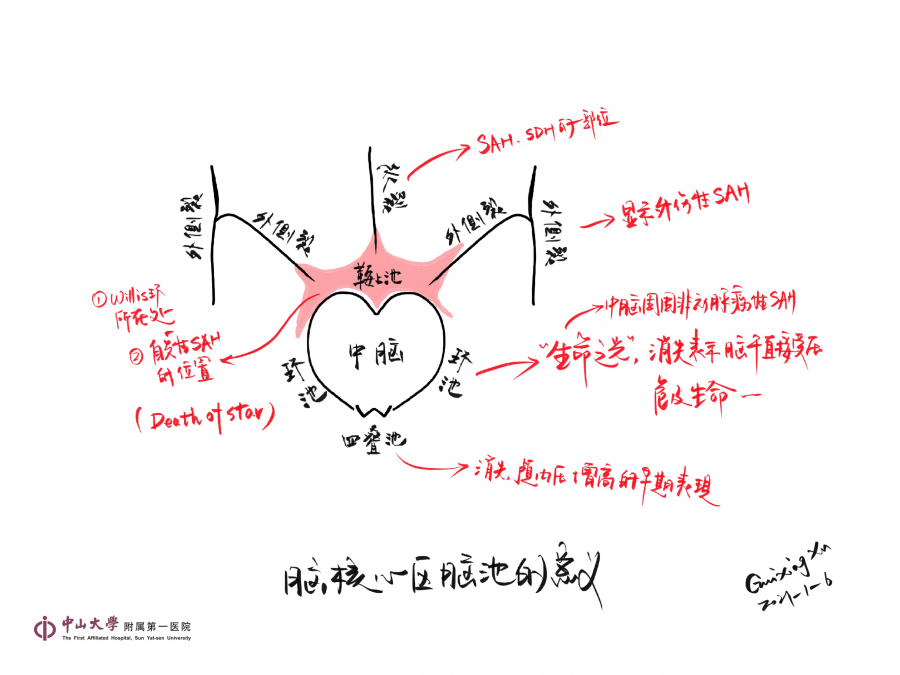 SAH、SDH的部位
纵裂
外侧裂
外侧裂
外侧裂
外侧裂
显示外伤性SAH
鞍上池
①Willis环
所在处
②自发性SAH
的位置
(Death of star)
中脑
环池
环池
四叠池
中脑周围非动脉瘤性SAH
“生命之光”,消失表示脑干直接受压
危及生命
消失 颅内压增高的早期表现
脑核心区脑池的意义
Guixing Xu
2021-1-6
中山大学 附属第一医院
The First Affiliated Hospital, Sun Yat-sen University